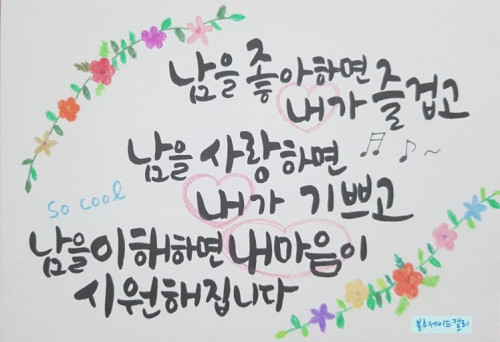 남을 좋아하면
내가 즐겁고
남을 사랑하면
내가 기쁘고
so cool
남을 이해하면 내마음이
시원해집니다
블루제이드캘리